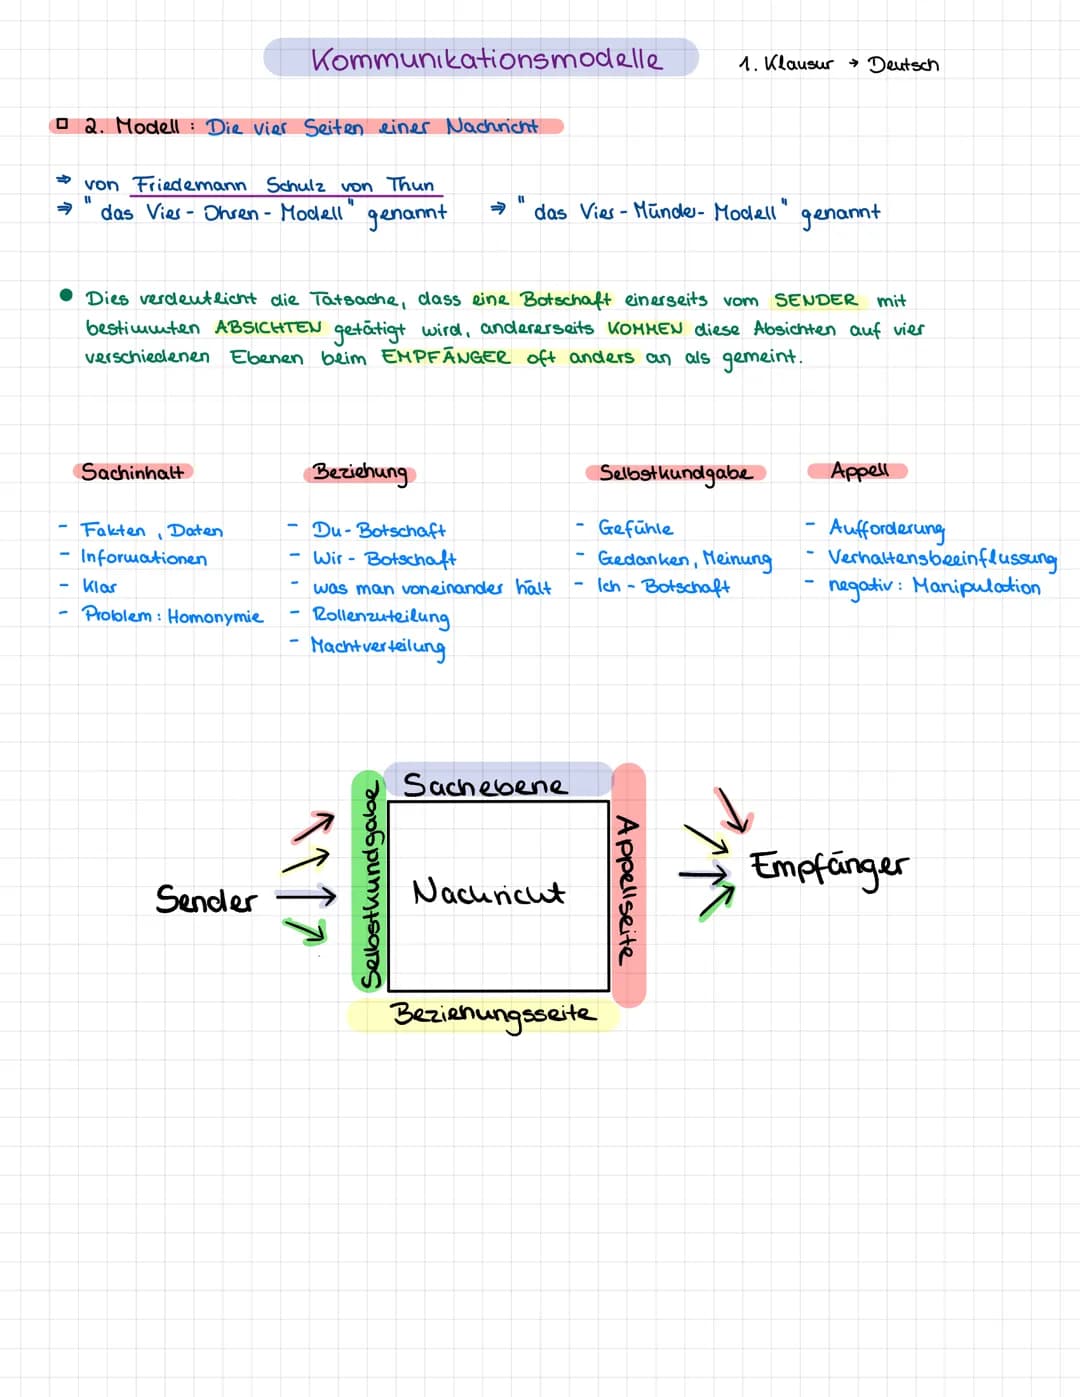 Kommunikationsmodelle
1. Klausur → Deutsch
2. Modell : Die vier Seiten einer Nachricht
⇒ von Friedemann Schulz von Thun
⇒ "das Vier - Ohren - Modell" genannt ⇒ "das Vier - Münder - Modell" genannt
• Dies verdeutlicht die Tatsache, dass eine Botschaft einerseits vom SENDER mit
bestimmten ABSICHTEN getätigt wird, andererseits KOMMEN diese Absichten auf vier
verschiedenen Ebenen beim EMPFÄNGER oft anders an als gemeint.
Sachinhalt
- Fakten, Daten
- Informationen
- Klar
- Problem : Homonymie
Beziehung
- Du - Botschaft
- Wir - Botschaft
- was man voneinander hält
- Rollenzuteilung
- Machtverteilung
Selbstkundgabe
- Gefühle
- Gedanken, Meinung
- Ich - Botschaft
Appell
- Aufforderung
- Verhaltensbeeinflussung
- negativ : Manipulation
Sender
Selbstkundgabe
Sachebene
Nachricht
Appellseite
Beziehungsseite
Empfänger